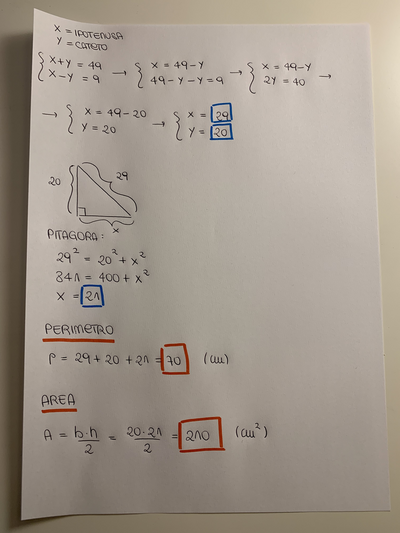 X = IPOTENUSA
Y = CATETO
{ X+Y = 49 → { X = 49-Y → { X = 49-Y →
{ X-Y = 9 { 49-Y-Y=9 { 2Y = 40
→ { X = 49-20 → { X = 29
{ Y = 20 { Y = 20
20 29
X
PITAGORA:
29² = 20² + X²
841 = 400 + X²
X = 21
PERIMETRO
P = 29 + 20 + 21 = 70 (cm)
AREA
A = b·h/2 = 20·21/2 = 210 (cm²)